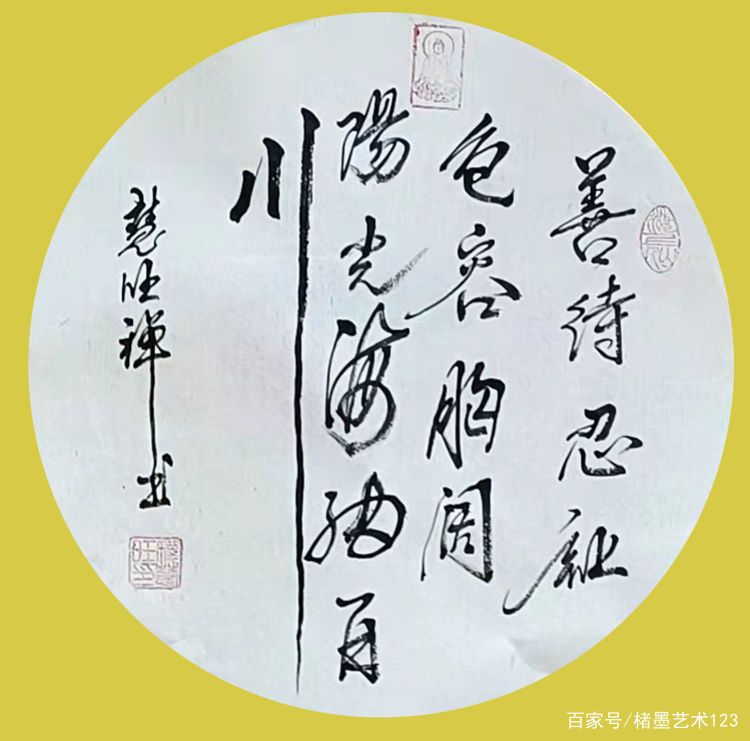 善待忍
包容胸阔
陽光海纳百
川
慧旺禅书
百家号/楮墨艺术123